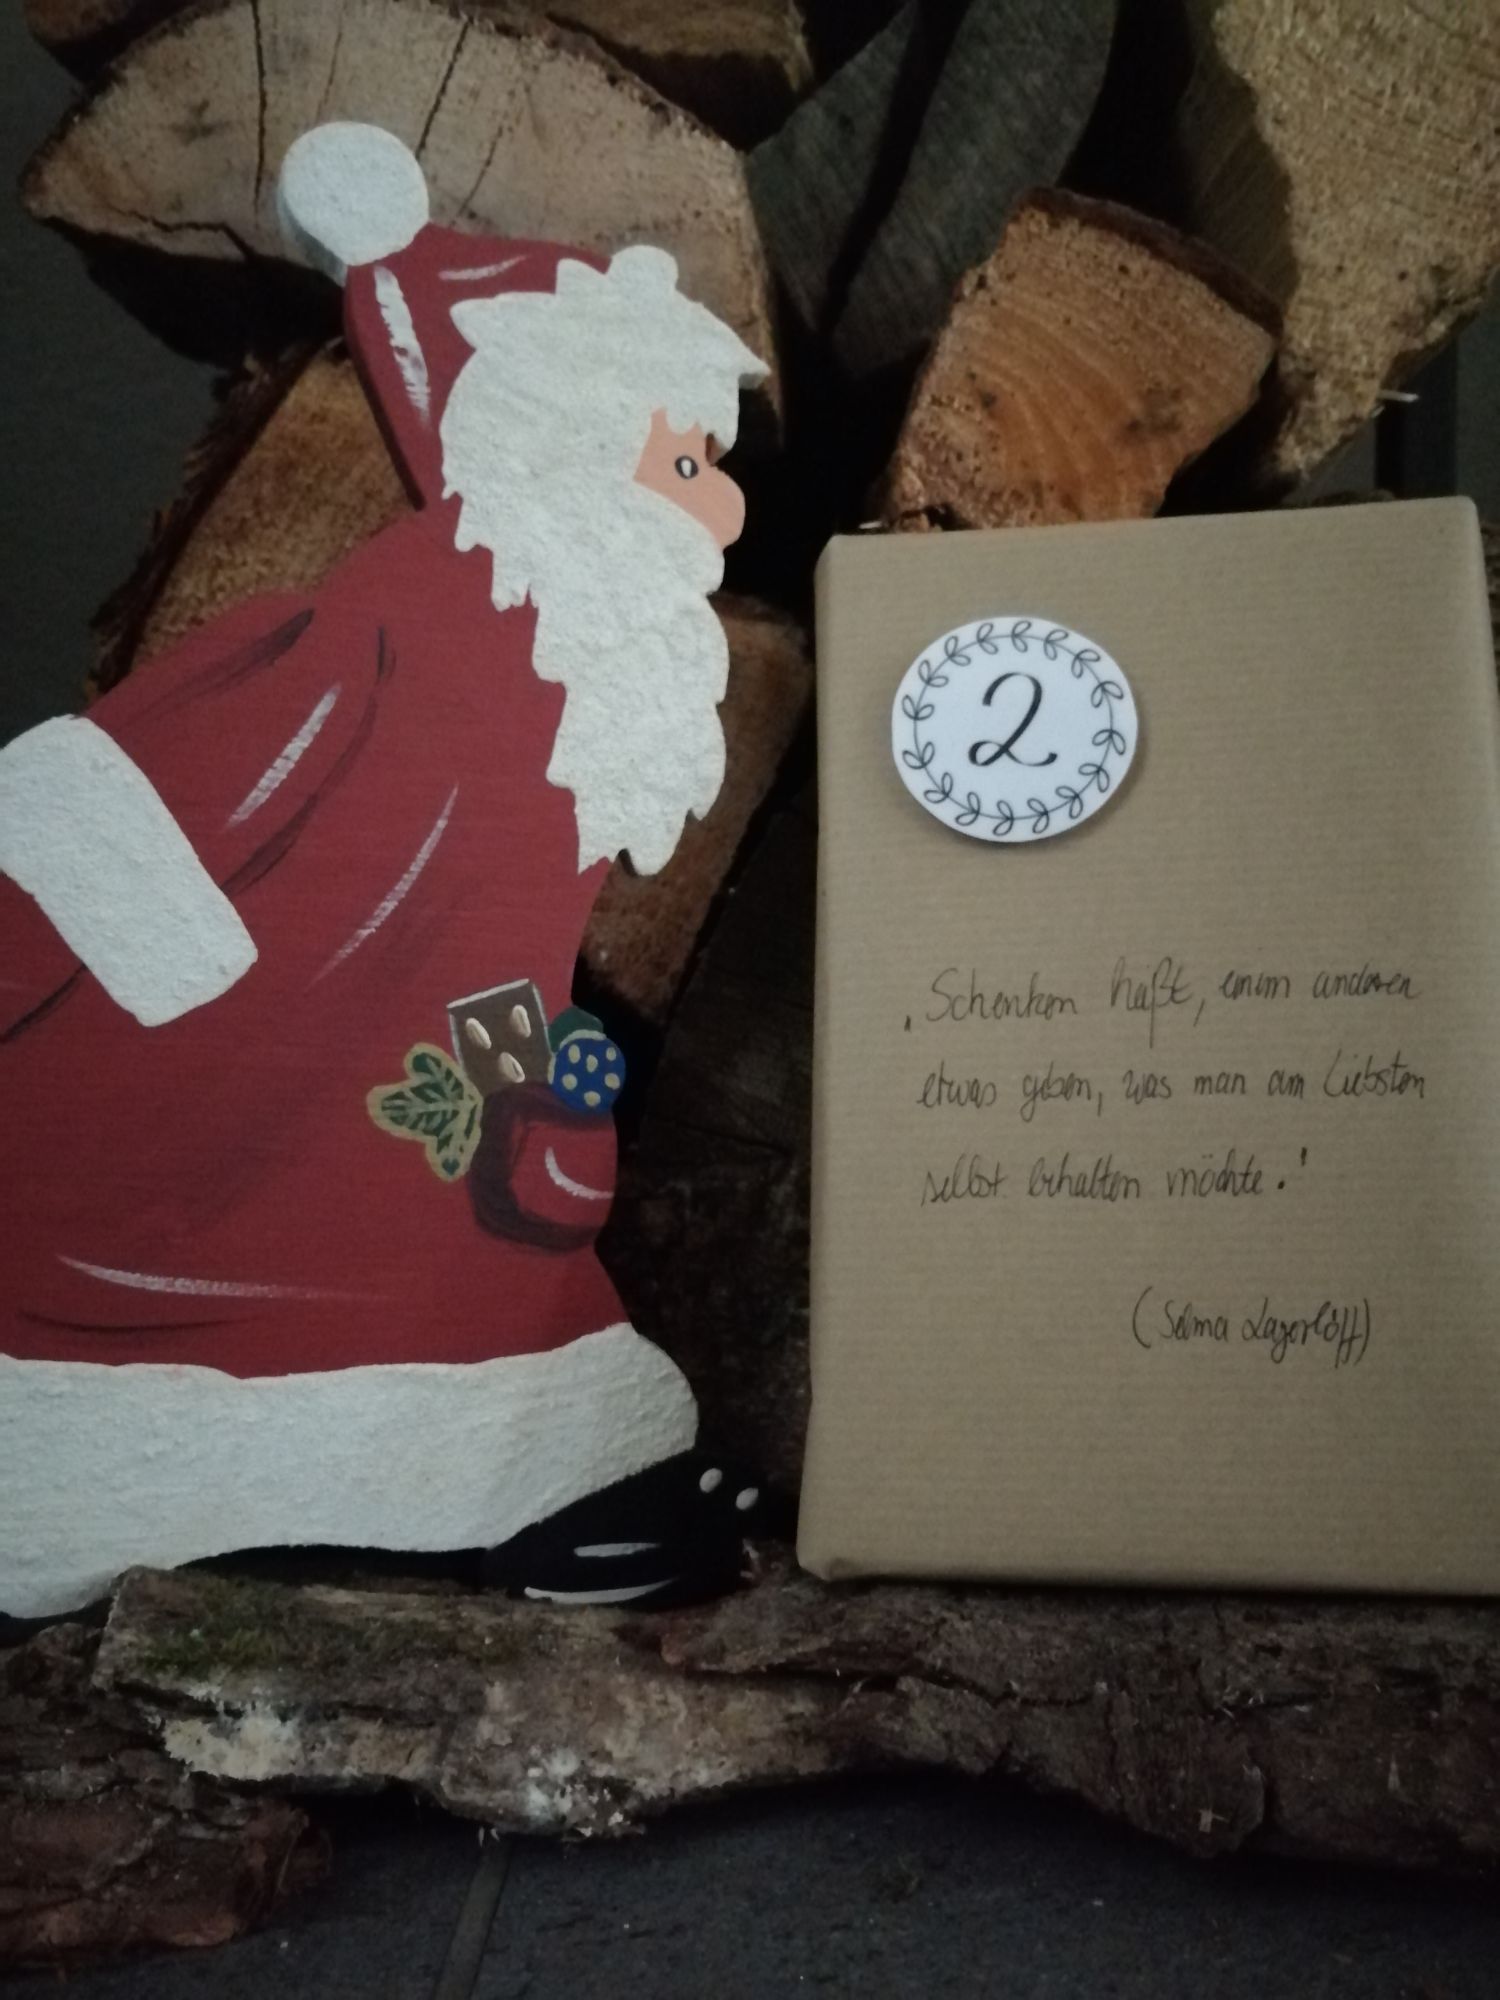 2
„Schenken heißt, einem anderen
etwas geben, was man am Liebsten
selbst behalten möchte."
(Selma Lagerlöff)